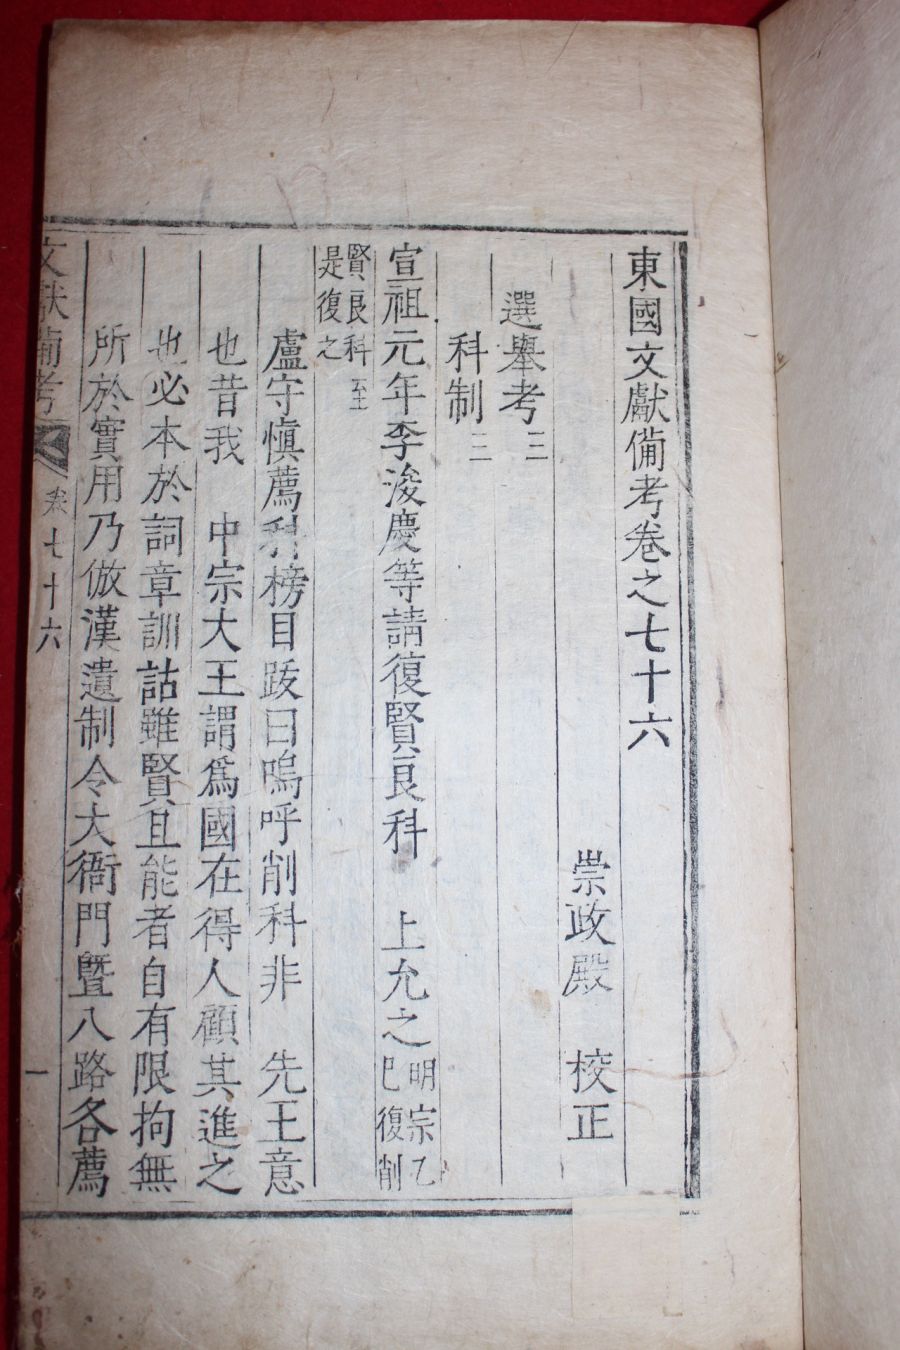 東國文獻備考卷之七十六
崇政殿 校正
選舉考三
科制二
宣祖元年李浚慶等請復賢良科 上允之明宗乙巳復削
賢良科至是復之
盧守愼薦科榜目跋曰嗚呼削科非 先王意
也昔我 中宗大王謂爲國在得人顧其進之
也必本於詞章訓詁雖賢且能者自有限拘無
所於實用乃倣漢遺制令大衙門曁八路各薦
文獻備考 卷七十六 一